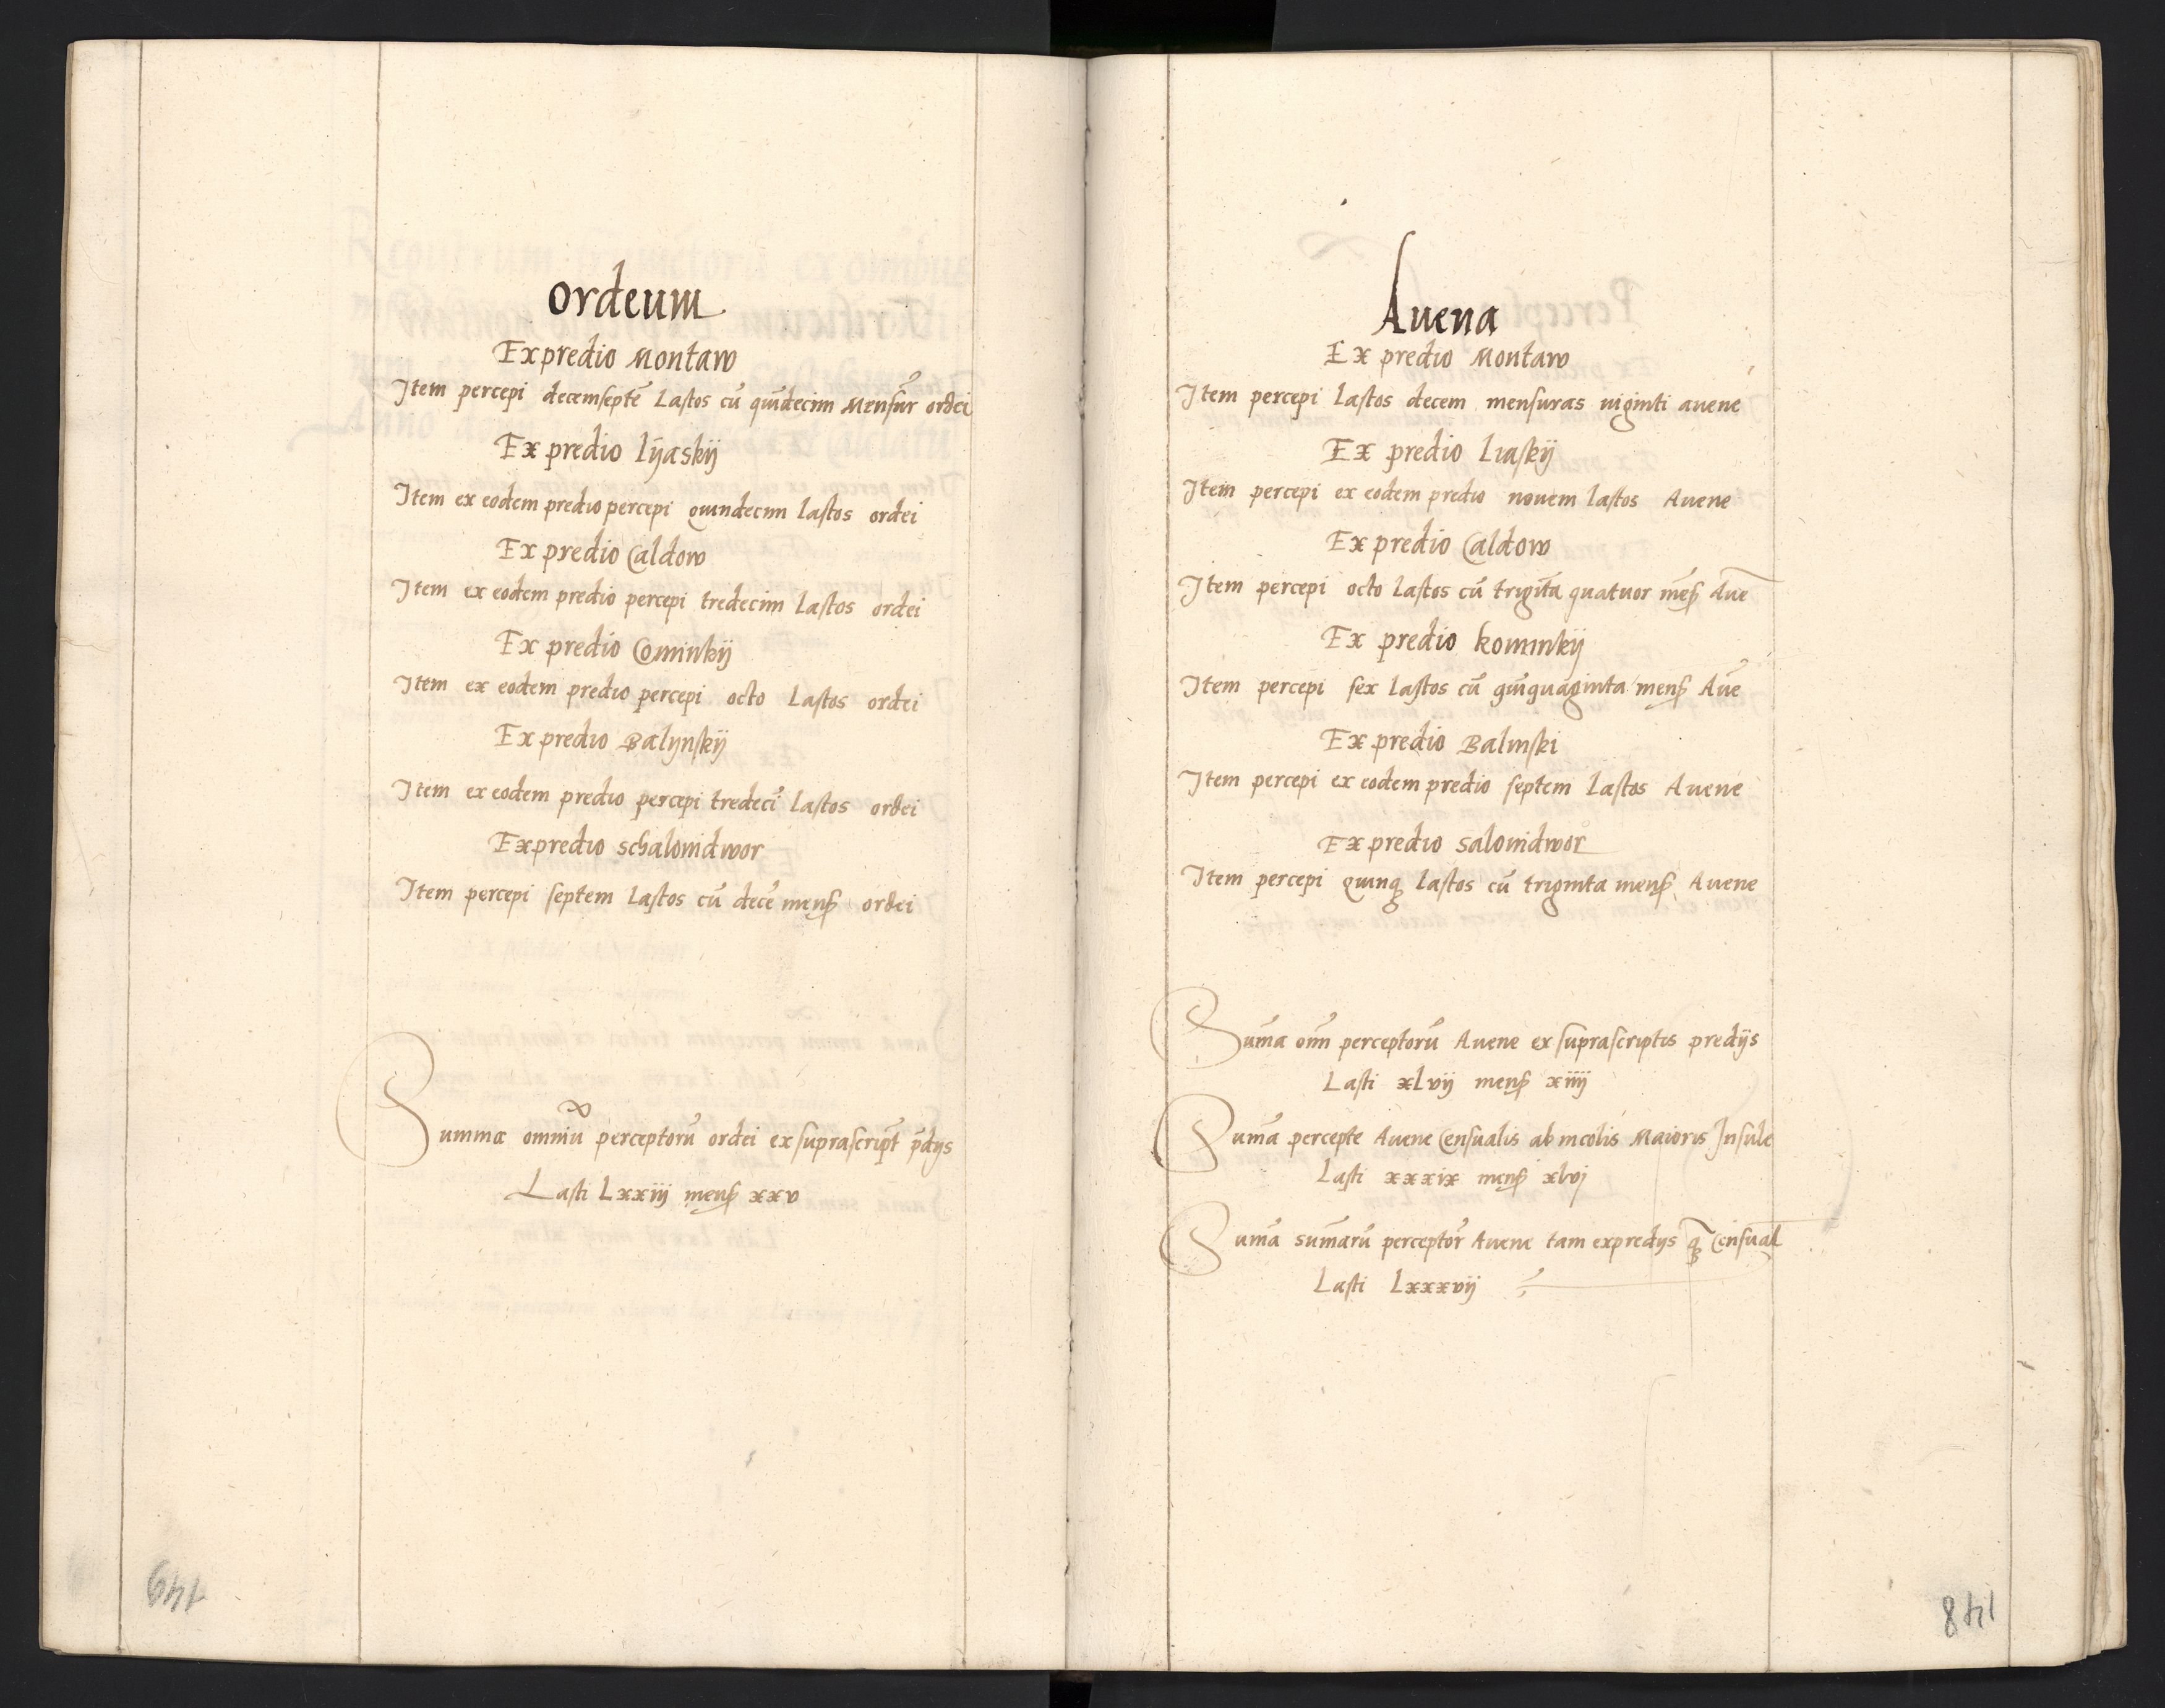 ordeum
Ex predio Montaw
Item percepi decemseptē Lastos cū quīdecim Mensur ordei
Ex predio lijaskij
Item ex eodem predio percepi quindecim lastos ordei
Ex predio Caldow
Item ex eodem predio percepi tredecim lastos ordei
Ex predio Cominskij
Item ex eodem predio percepi octo Lastos ordei
Ex predio Balijnskij
Item ex eodem predio percepi tredecī Lastos ordei
Ex predio schaloindwor
Item percepi septem Lastos cū decē mens ordei
Summa omniū perceptorū ordei ex suprascript pdijs
Lasti Lxxiij mens xxv
149
Auena
Ex predio Montaw
Item percepi lastos decem mensuras uiginti auene
Ex predio Liaskij
Item percepi ex eodem predio nouem lastos Auene
Ex predio Caldow
Item percepi octo lastos cū trigīta quatuor mēs Aue
Ex predio kominskij
Item percepi sex lastos cū quīquaginta mens Aūe
Ex predio Balinski
Item percepi ex eodem predio septem Lastos Auene
Ex predio saloindwor
Item percepi quinq lastos cū triginta mens Auene
Sum̄a om̄n perceptorū Auene ex suprascriptis predijs
Lasti xlvij mens xiiij
Sum̄a percepte Auene Censualis ab incolis Maioris Insule
Lasti xxxix mens xlvj
Sum̄a sum̄arū perceptor Auene tam ex predijs q̄ Censual
Lasti Lxxxvij
148